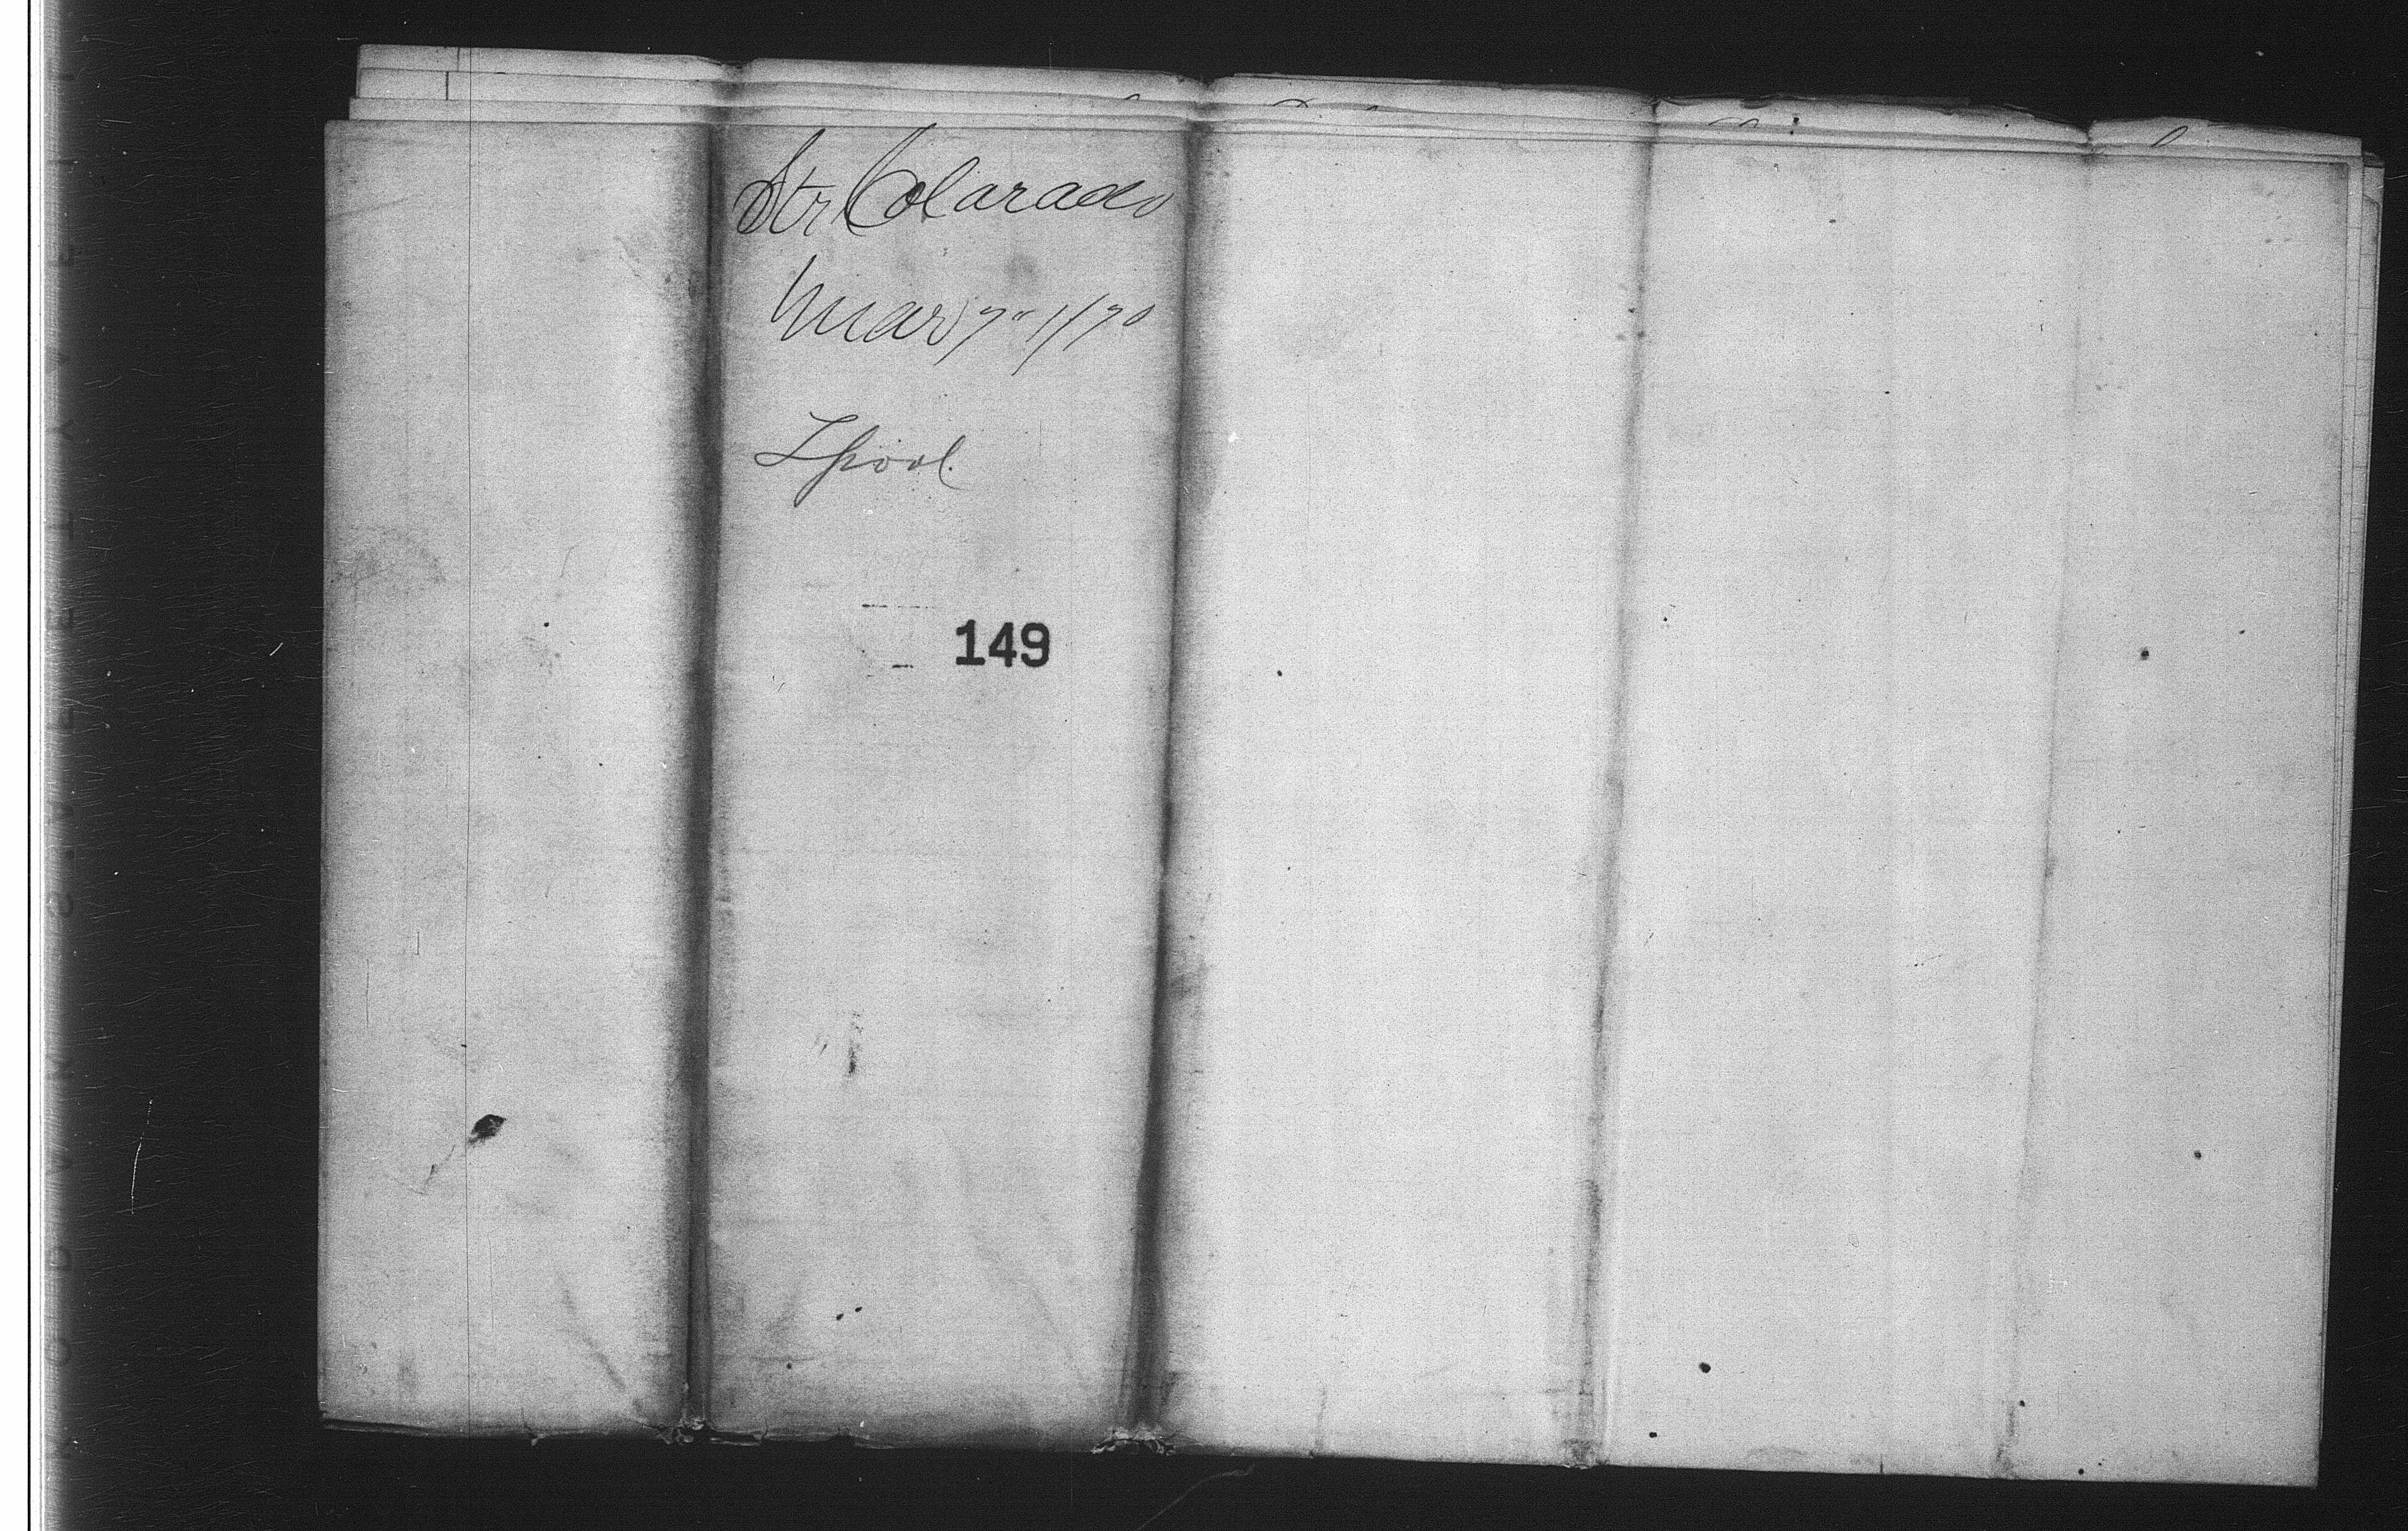 Str Colarado
Mar 7" 1870
Lpool.
149